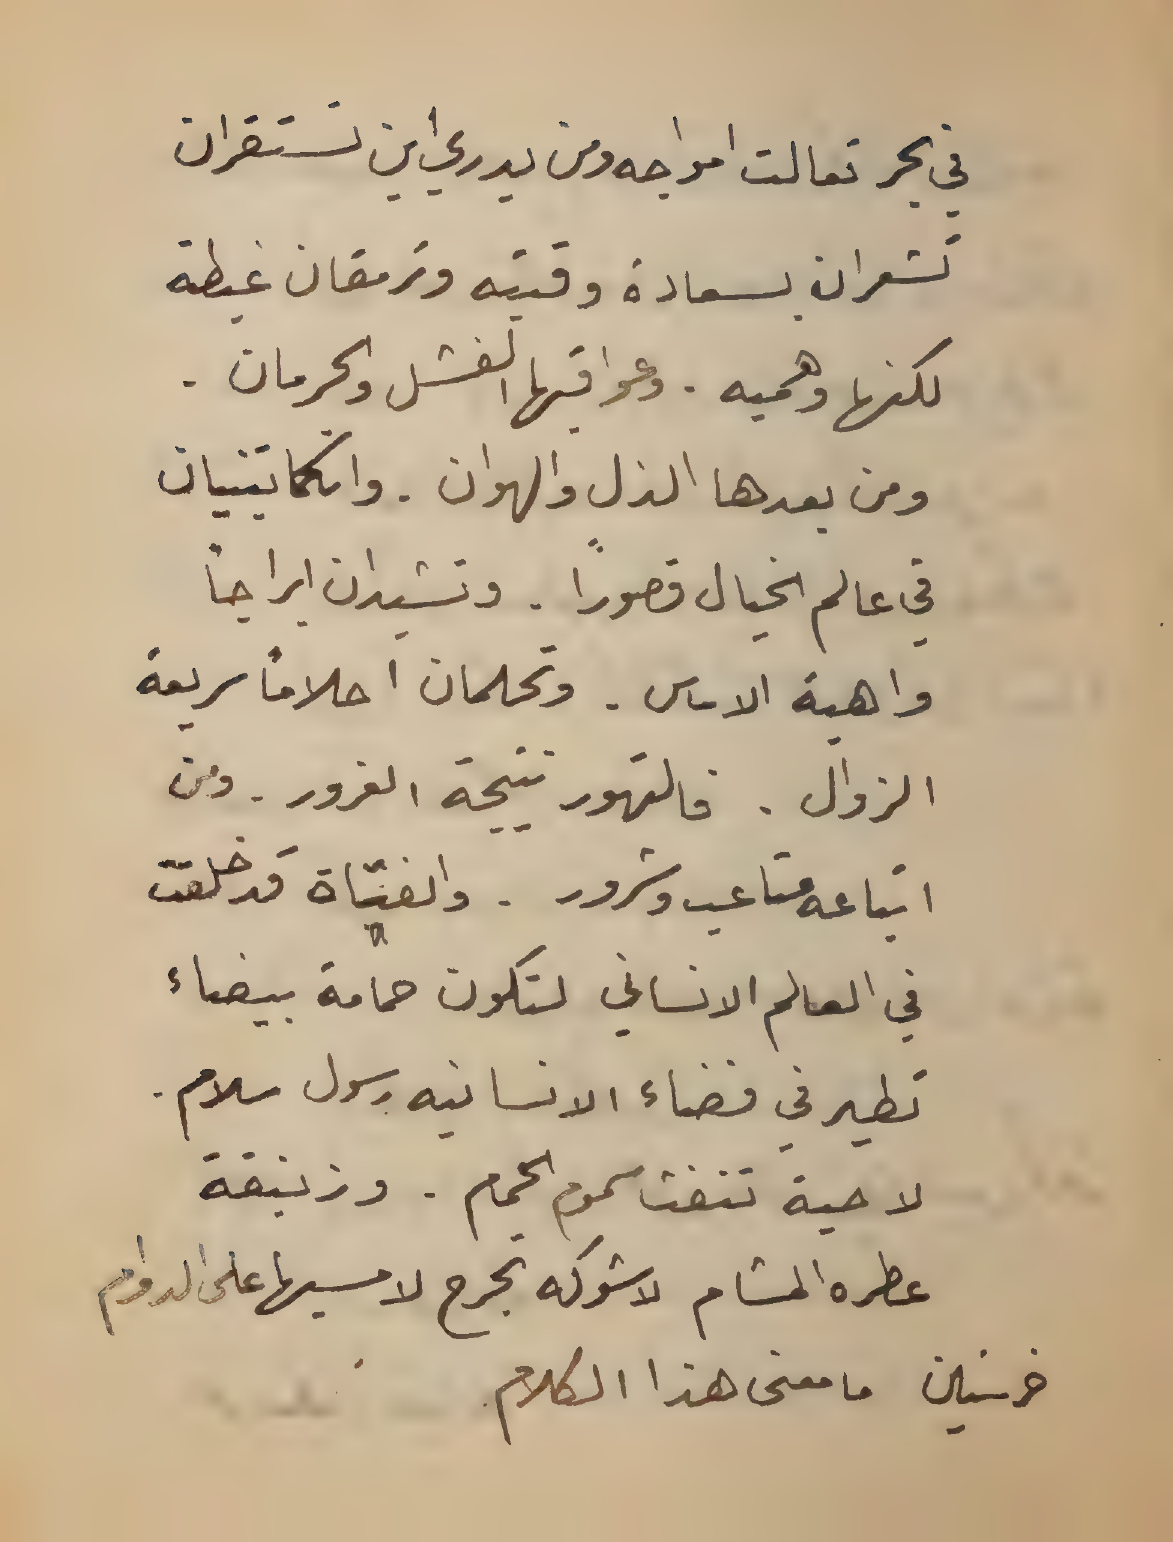 في بحر تعالت امواجه ومن يدري أين تستقران
تشعران بسعادة وقتيه وترمقان غبطة
لكنها وهميه . وعواقبها الفشل والحرمان .
ومن بعدها الذل والهوان . وانكما تبنيان
في عالم الخيال قصوراً . وتشيدان ابراجاً
واهية الاساس . وتحلمان احلاماً سريعة
الزوال . فالتهور نتيجة الغرور . ومن
اتباعه متاعب وشرور . والفتاة قد خلقت
في العالم الانساني لتكون حمامة بيضاء
تطير في فضاء الانسانيه رسول سلام .
لا حية تنفث سموم الحمام . وزنبقة
عطره المشام لا شوكه تجرح لامسيها على الدوام
خرستين ما معنى هذا الكلام .